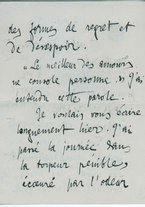 des formes de regret et
de désespoir.
"Le meilleur des amours
ne console personne." J'ai
entendu cette parole.
Je voulais vous écrire
longuement hier. J'ai
passé la journée dans
la torpeur pénible,
écœuré par l'odeur